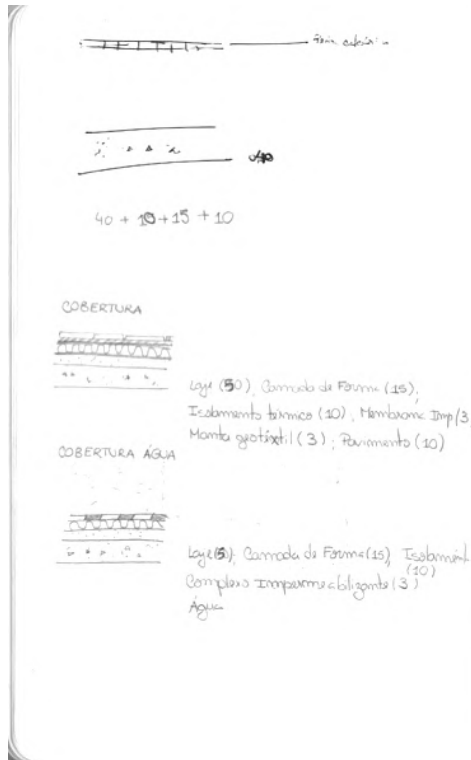 40 + 10 + 15 + 10
COBERTURA
Laje (50), Camada de Forma (15);
Isolamento térmico (10), Membrana Imp (3
Manta geotêxtil (3); Pavimento (10)
COBERTURA ÁGUA
Laje (50); Camada de Forma (15) Isolament
(10)
Complexo Impermeabilizante (3)
Água